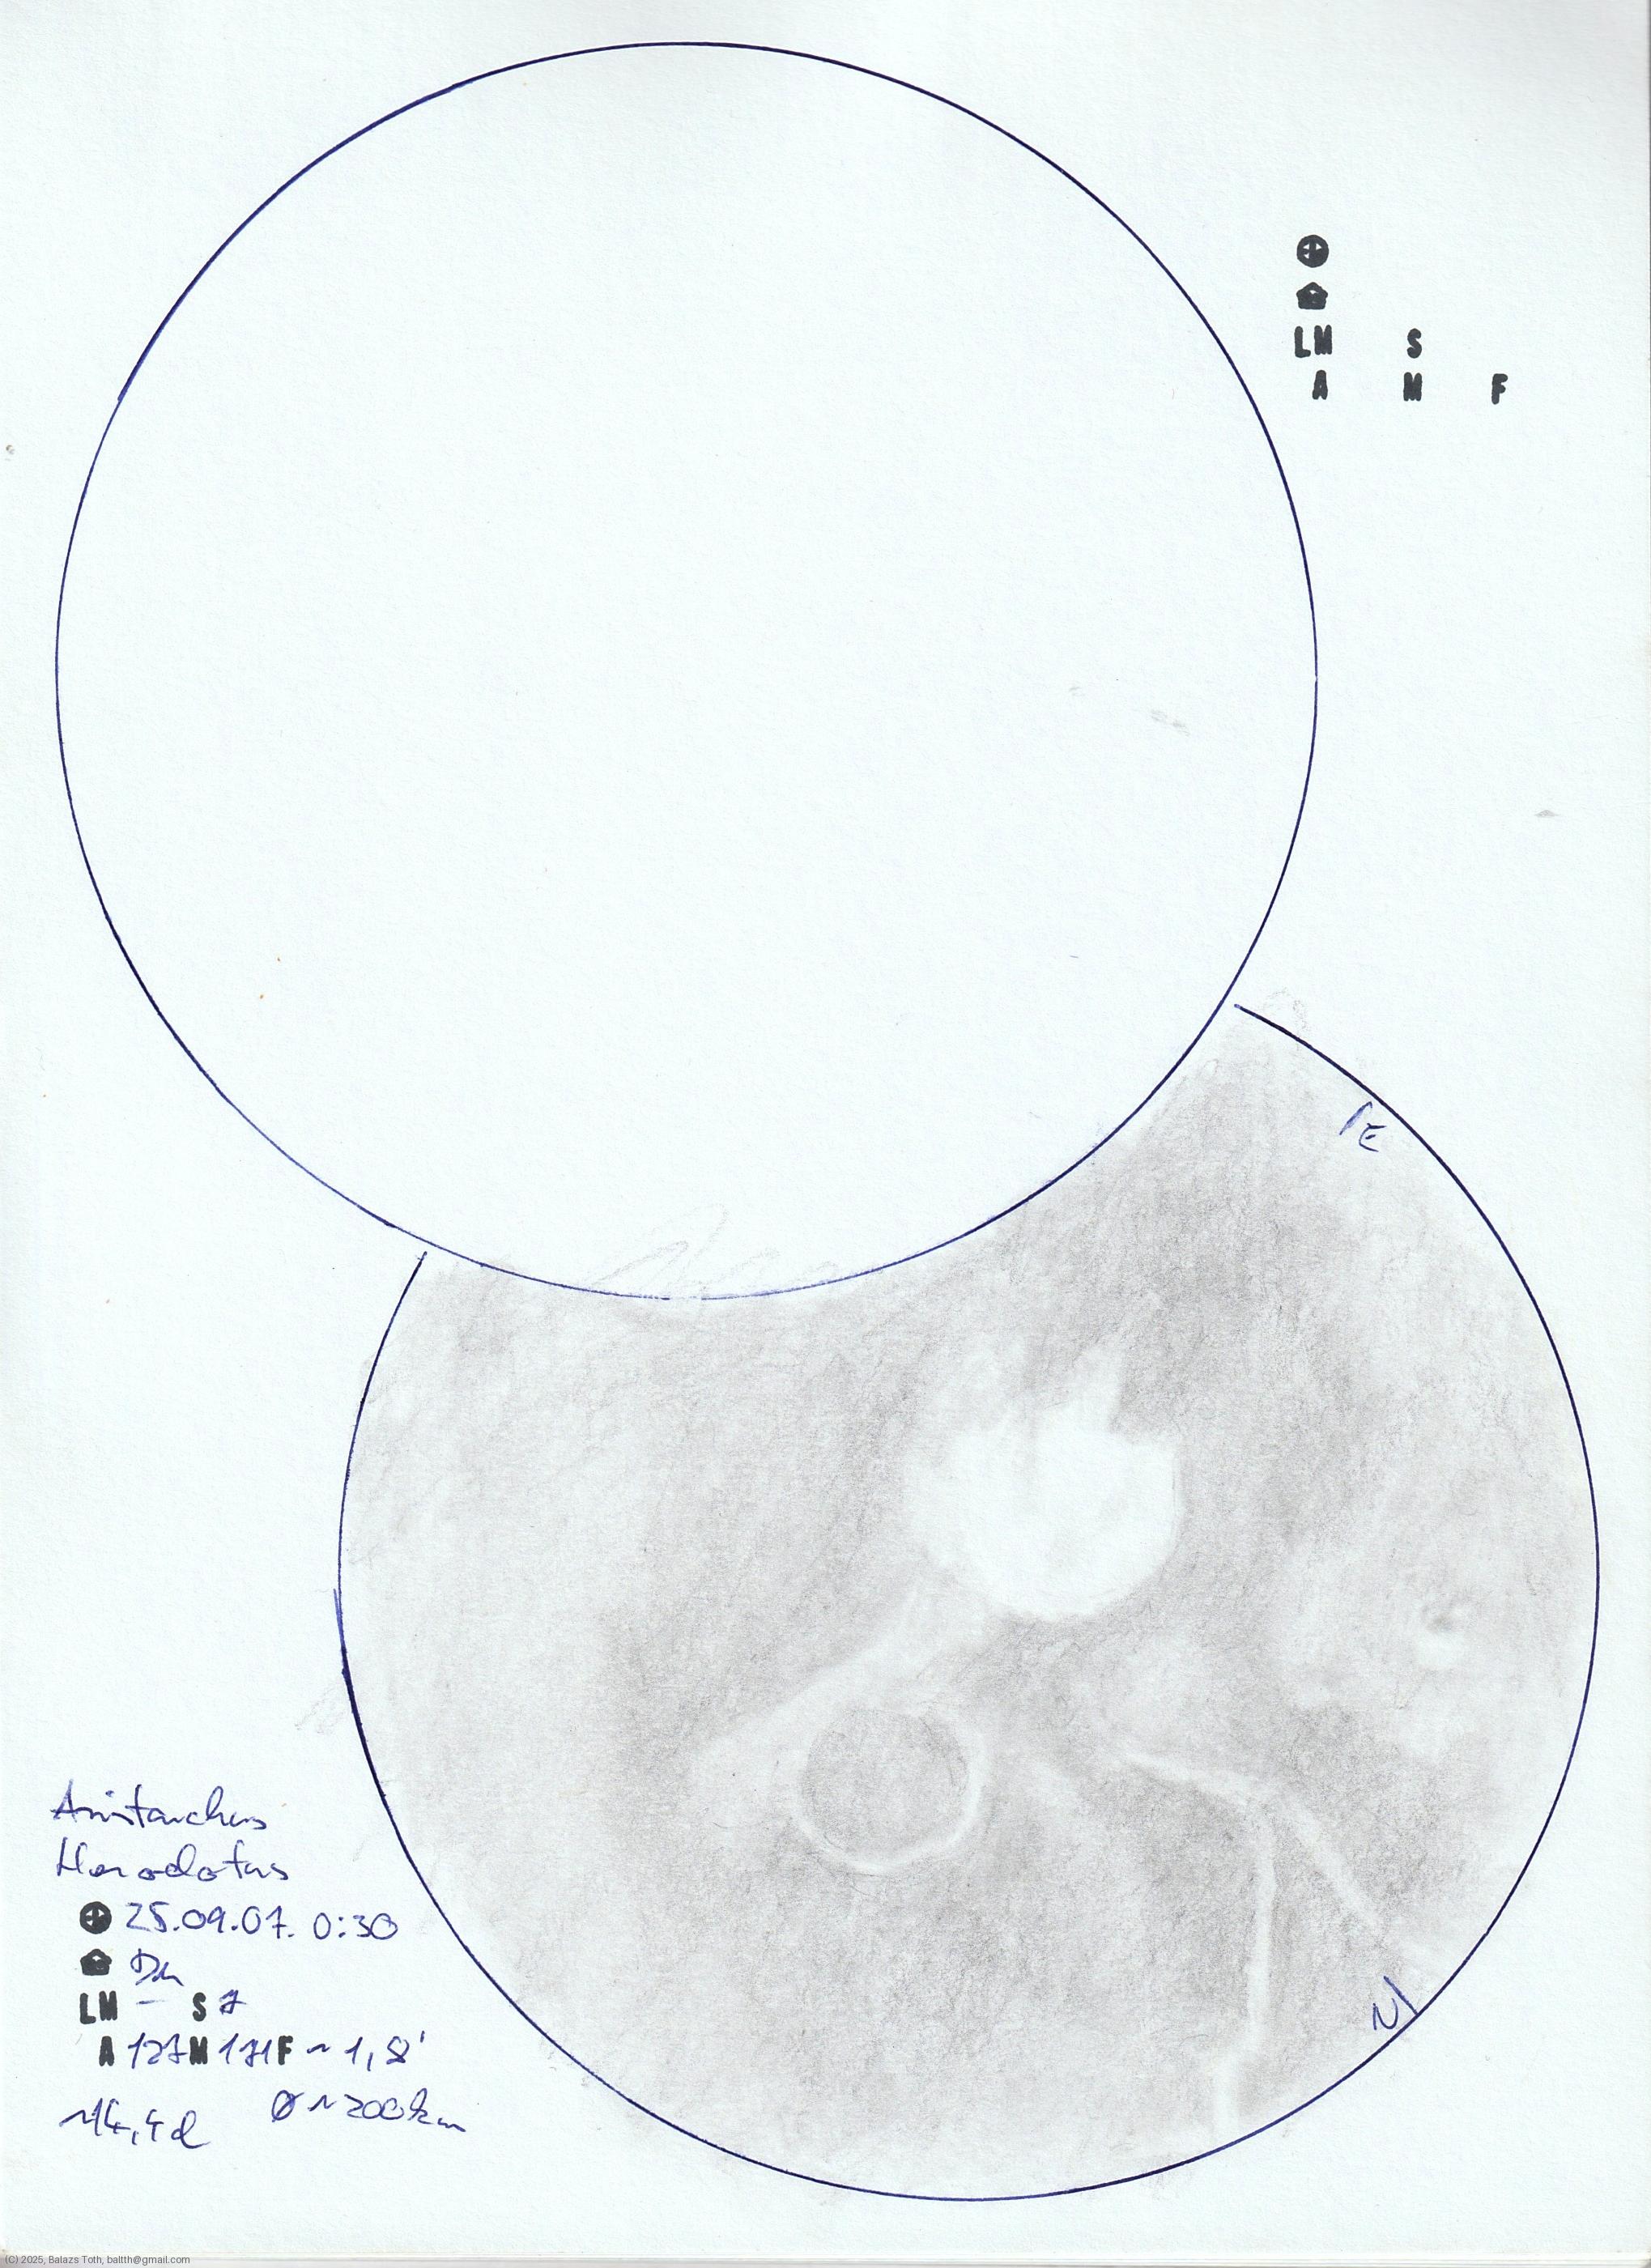 LM S
A M F
E
Aristarchus
Herodotus
25.09.07. 0:30
LM – S 7
N
A 127 M 171 F ~ 1,8'
~14,4d Ø ~ 200km
(C) 2025, Balazs Toth, baltth@gmail.com